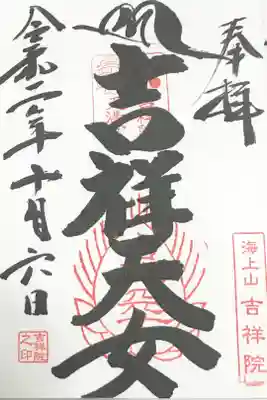 奉拝
吉祥天女
令和二年十月六日
海上山 吉祥院
吉祥院
之印